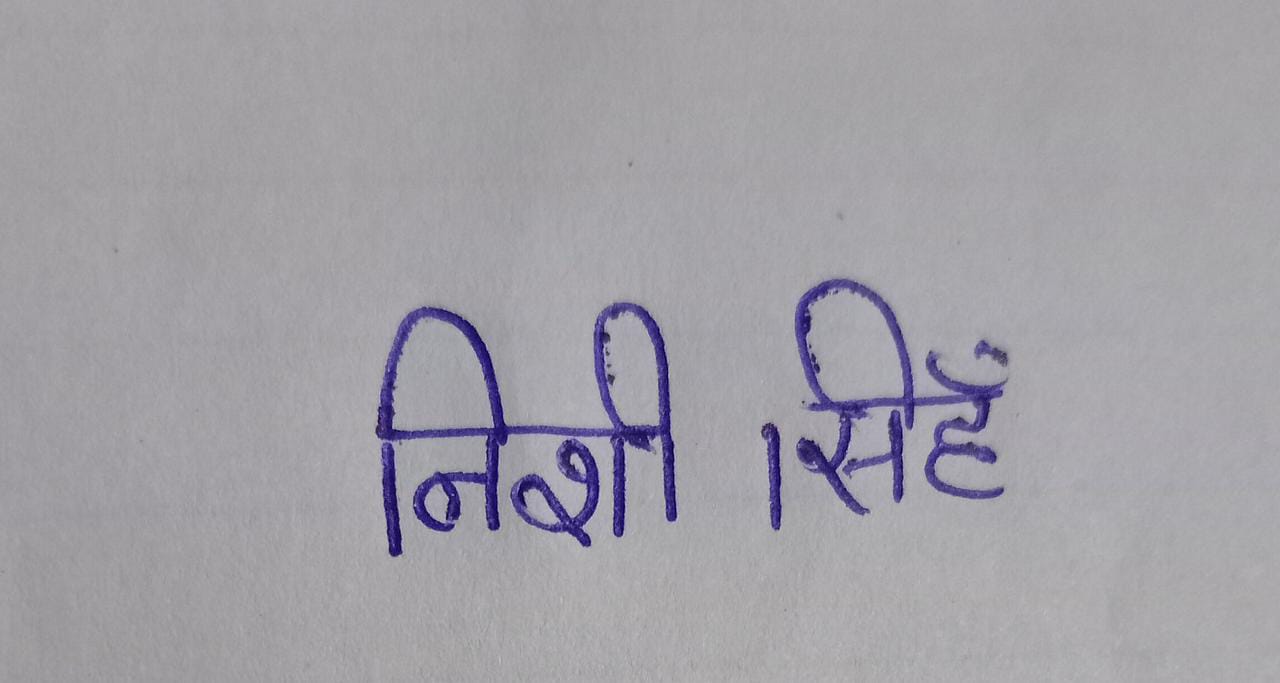 निशी सिहँ